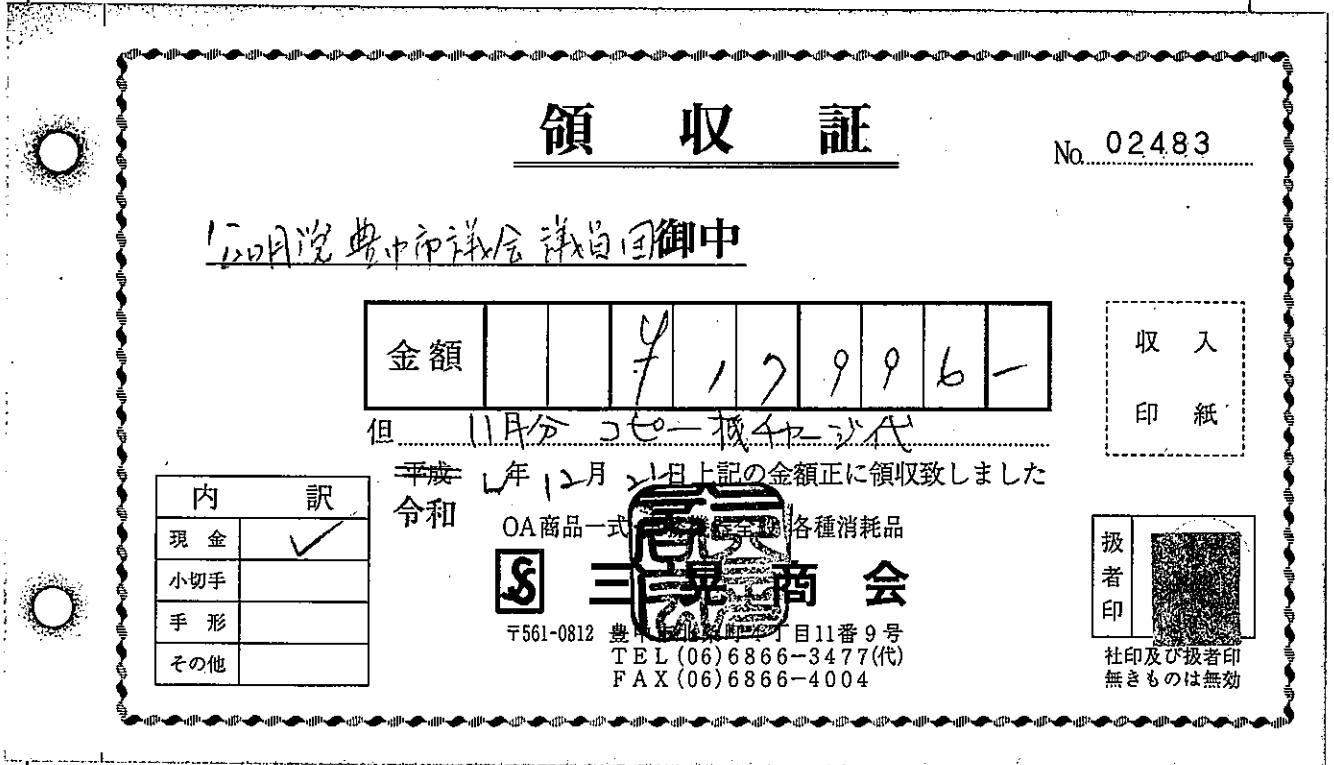 領収証
No. 02483
公明党豊中市議会議員団御中
金額 ¥17996-
収入
印紙
但 11月分 コピー機チャージ代
平成 年12月21日上記の金額正に領収致しました
令和
内訳
現金 ✓
小切手
手形
その他
OA商品一式 各種消耗品
三晃商会
〒561-0812 豊中 丁目11番9号
TEL(06)6866-3477(代)
FAX(06)6866-4004
扱者印
社印及び扱者印
無きものは無効